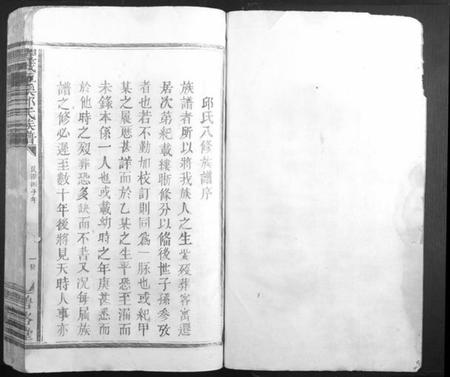 邱氏八修族譜序
族譜者所以將我族人之生娶歿葬客寓遷
居次第紀載縷晰條分以俻後世子孫叅攷
者也若不勤加校訂則同爲一脉也或紀甲
某之履歷甚詳而於乙某之生平恐至漏而
未錄本係一人也或載幼時之年庚甚悉而
於他時之歿葬恐多缺而不書又况每屆族
譜之修必遲至數十年後將見天時人事亦
邱氏族譜